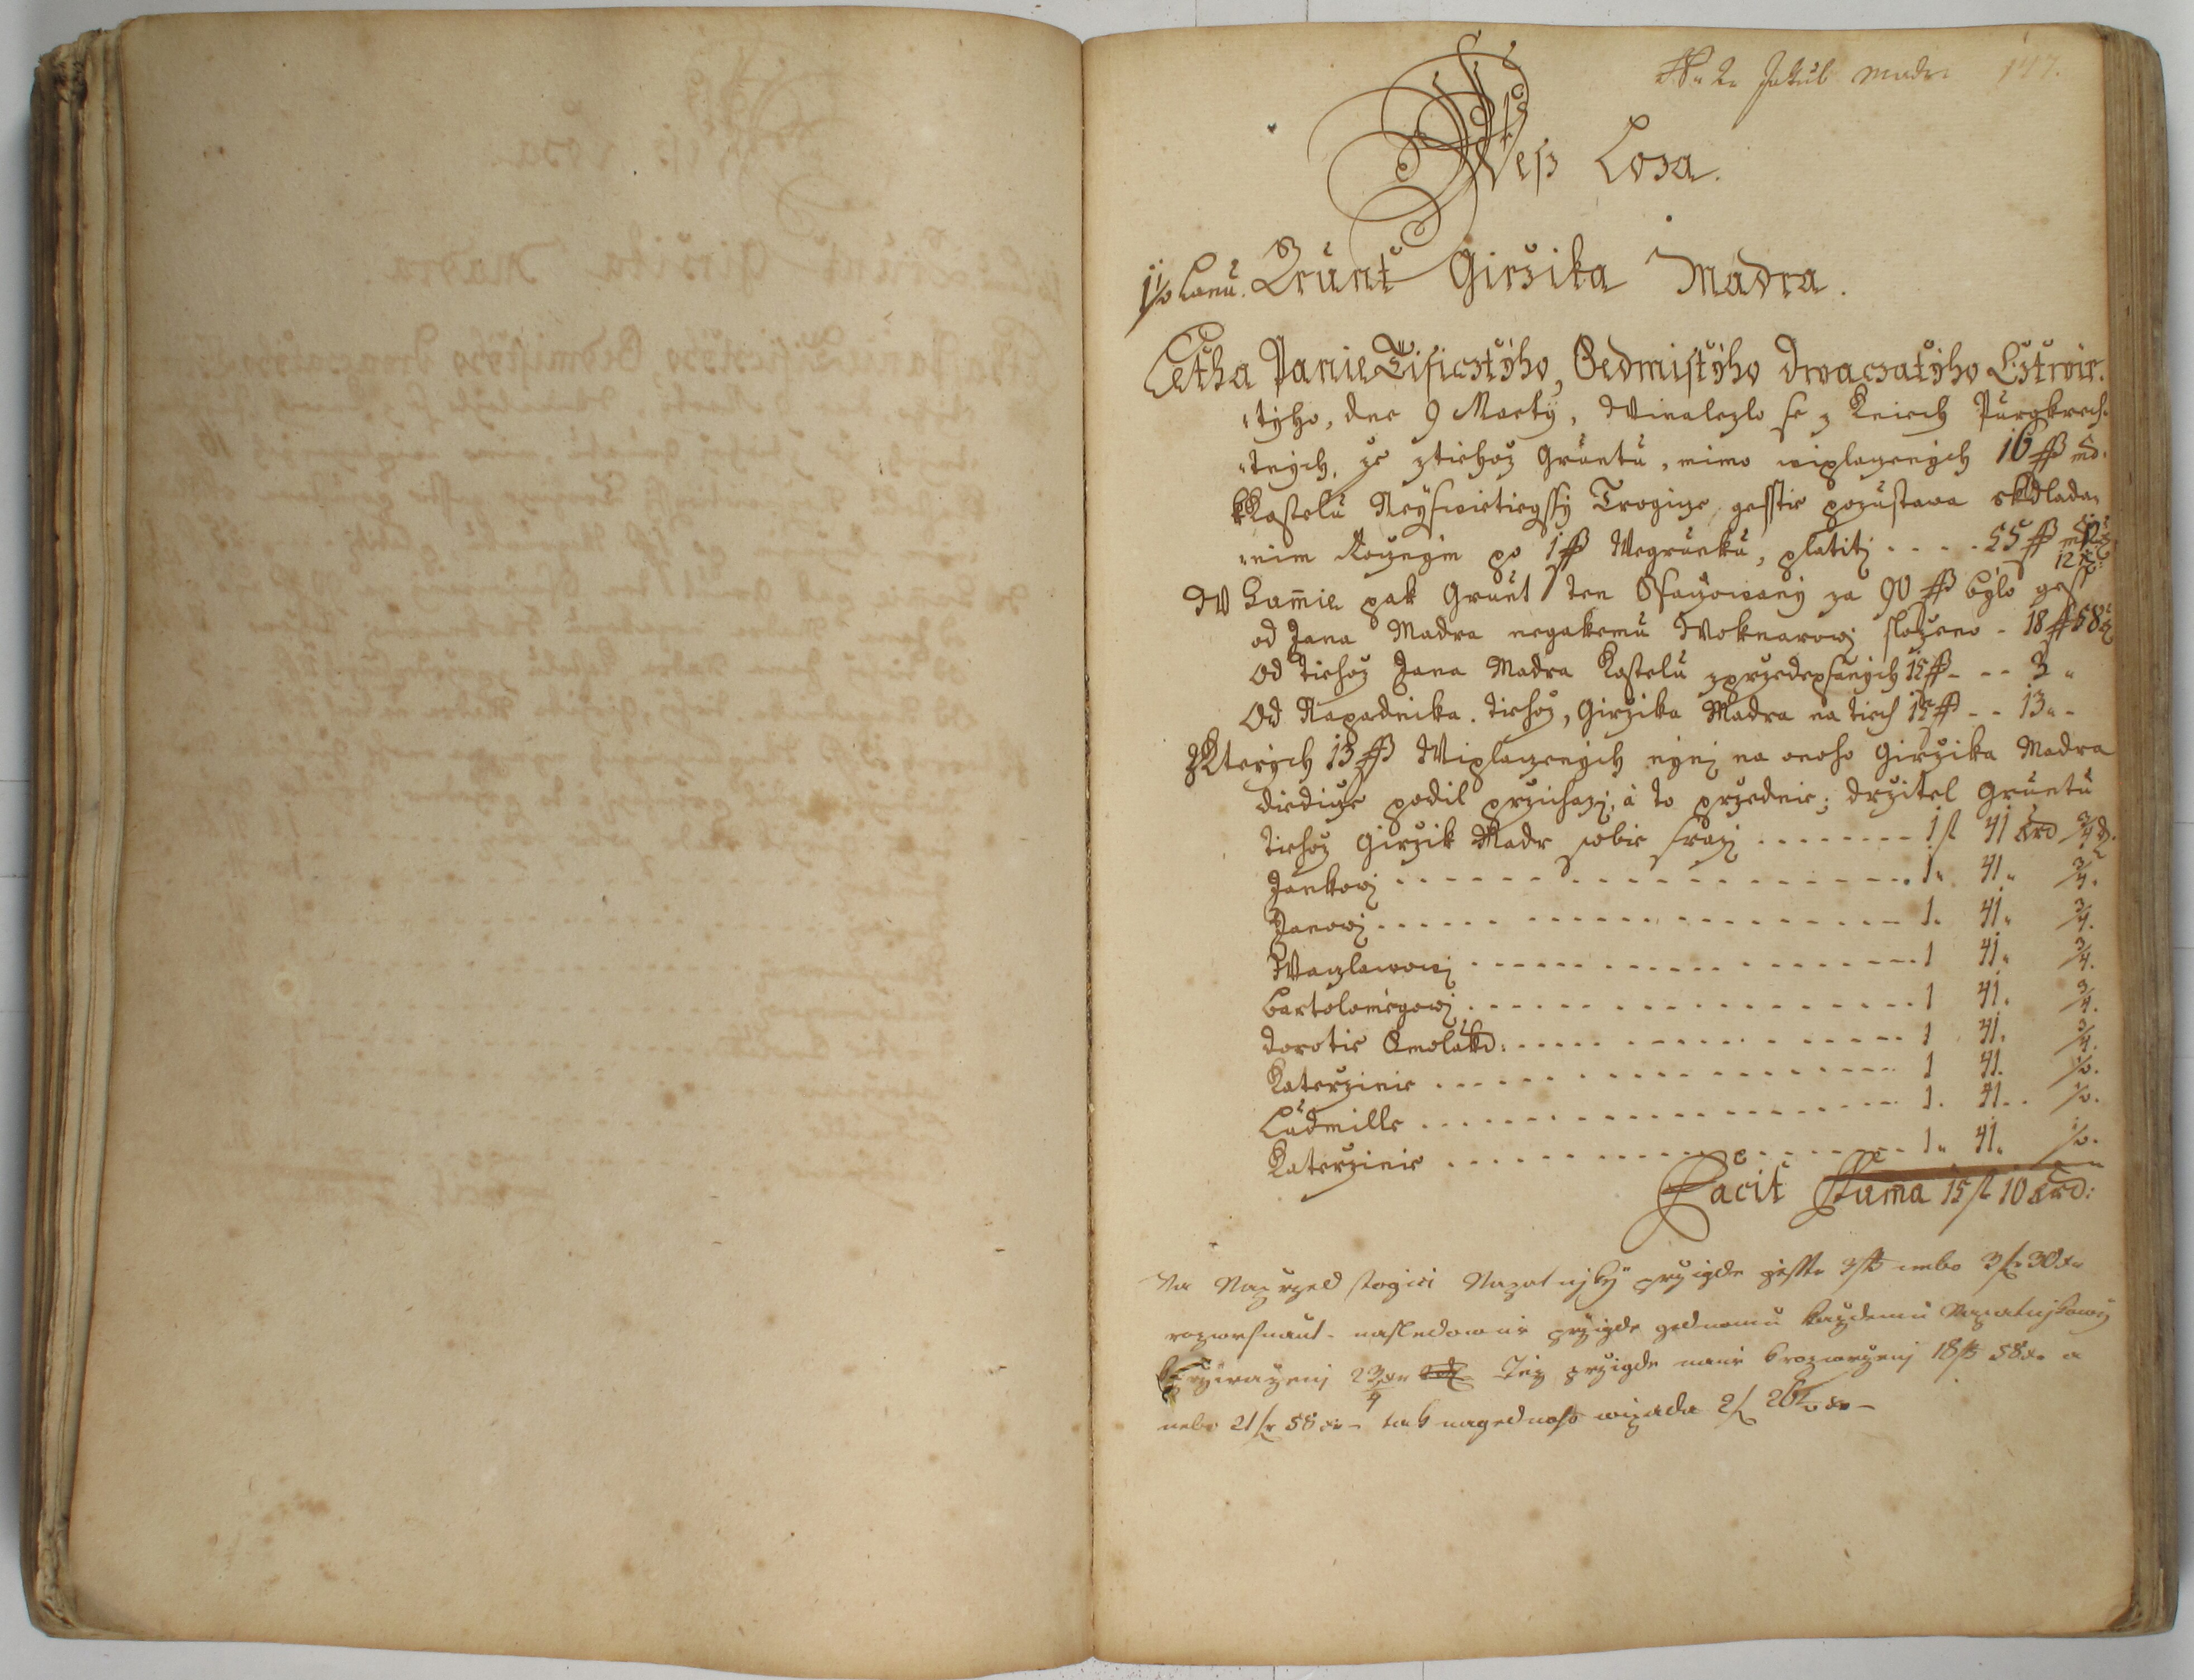 No 2. Jakub Madr 147.
Weß Loza.
1/2 Lanu. Grunt Girzika Madra.
Letha Panie Tisicztyho, Sedmistyho dwaczatyho Cztwir-
tyho, dne 9 Marty, Winalezlo se z Kniech Purgkrech-
tnych, ze z tiehoz Gruntu, mimo wiplaczenych 16 ß md.
k Kostelu Neyswietiegssy Trogicze, gesstie pozustawa sklada-
nim Rocznym po 1 ß Wegrunku, platitj . . . . 55 ß
12 x
W Summie pak Grunt ten Ssaczowany za 90 ß bylo gest
od Jana Madra negakemu Woknarowj slozeno - 18 ß 58 x
Od tiehoz Jana Madra Kostelu z przedepsanych 15 ß - - - 3 "
Od Napadnika. tiehoz, Girzika Madra na tiech 15 ß - - 13 " -
Z Kterych 13 ß Wiplaczenych nynj na onoho Girzika Madra
diedicze podil przichazy, a to przednie; drzitel Gruntu
tiehoz Girzik Madr sobie srazy . . . . . . . . 1 f 41 krd 3/4 d.
Jankowj . . . . . 1 " 41 " 3/4.
Janowj . . . . . 1 " 41 " 3/4.
Waczlawowj . . . . . 1 41 " 3/4.
Bartolomiegowj . . . . . 1 41 . 3/4.
Dorotie . . . . . 1 41 . 3/4.
Katerzinie . . . . . 1 41 . 1/2.
Ludmille . . . . . 1 . 41 . . 1/2.
Katerzinie . . . . . 1 " 41 " 1/2.
Facit Suma 15 f 10 krd:
Na Nazrzed stogici przigde gesste 3 ß nebo 3 f 30 x
rozwrhnaut. nasledownie przigde gednomu kazdemu
23 x Tez przigde nanie k rozwrzenj 18 ß 58 x a
nebo 21 f 58 x - tak nagednoho wipada 2 f 26 1/2 x -